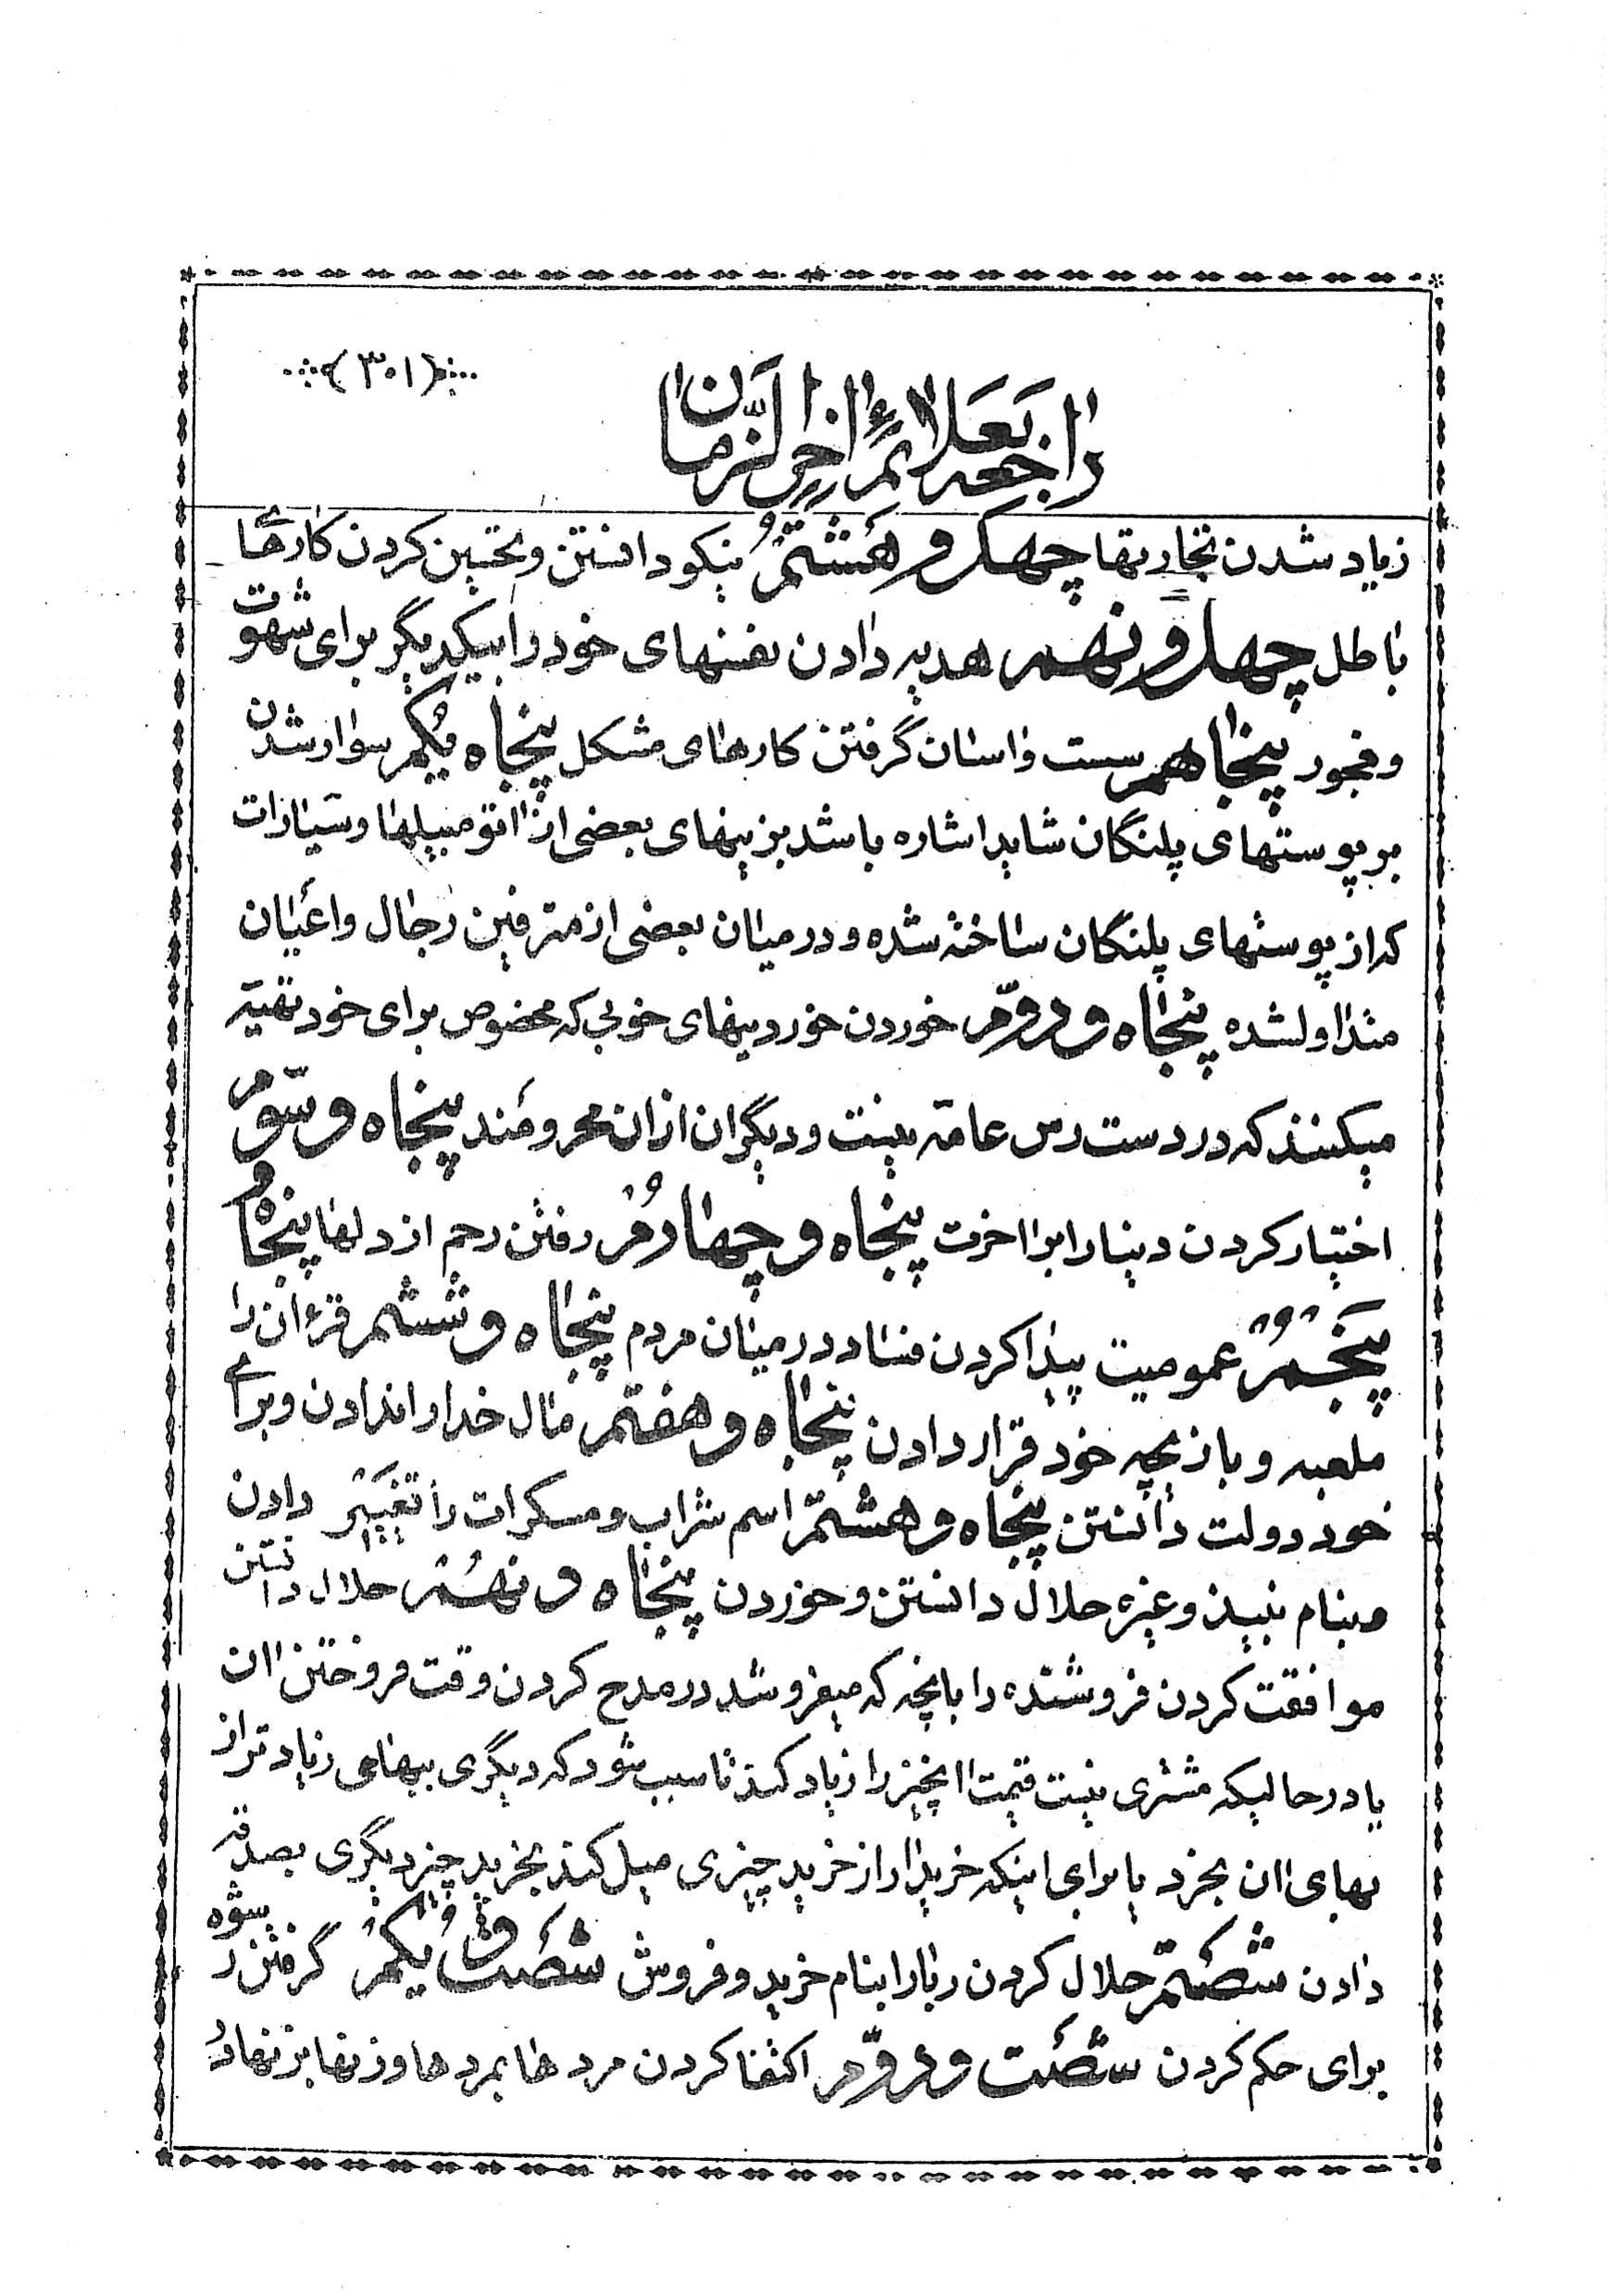 ﴿۳۰۱﴾
راجعه بعلائم آخر الزمان
زیاد شدن تجارتها چهل و هشتم نیکو دانستن و تحسین کردن کارهای
باطل چهل و نهم هدیه دادن نفسهای خود را بیکدیگر برای شهوت
و فجور پنجاهم سست و اسان گرفتن کارهای مشکل پنجاه یکم سوار شدن
بر پوستهای پلنگان شاید اشاره باشد بزینهای بعضی از اتومبیلها و سیارات
که از پوستهای پلنگان ساخته شده و در میان بعضی از مترفین رجال و اعیان
متداول شده پنجاه و دوم خوردن خوردنیهای خوبی که مخصوص برای خود تهیه
میکنند که در دست رس عامه نیست و دیگران از ان محرومند پنجاه و سوم
اختیار کردن دنیا را بر اخرت پنجاه و چهارم رفتن رحم از دلها پنجاه و
پنجم عمومیت پیدا کردن فساد در میان مردم پنجاه و ششم قرءان را
ملعبه و بازیچه خود قرار دادن پنجاه و هفتم مال خدا را ندادن و برای
خود دولت دانستن پنجاه و هشتم اسم شراب و مسکرات را تغییر دادن
مبنام نبیذ و غیره حلال دانستن و خوردن پنجاه و نهم حلال دانستن
موافقت کردن فروشنده را بانچه که میفروشد در مدح کردن وقت فروختن ان
یا در حالیکه مشتری نیست قیمت انچیز را زیاد کند تا سبب شود که دیگری ببهای زیادتر از
بهای ان بخرد یا برای اینکه خریدار از خرید چیزی میل کند بخرید چیز دیگری بصدقه
دادن شصتم حلال کردن ربا را بنام خرید و فروش شصت و یکم گرفتن رشوه
برای حکم کردن شصت و دوم اکتفا کردن مردها بمردها و زنها بزنها در